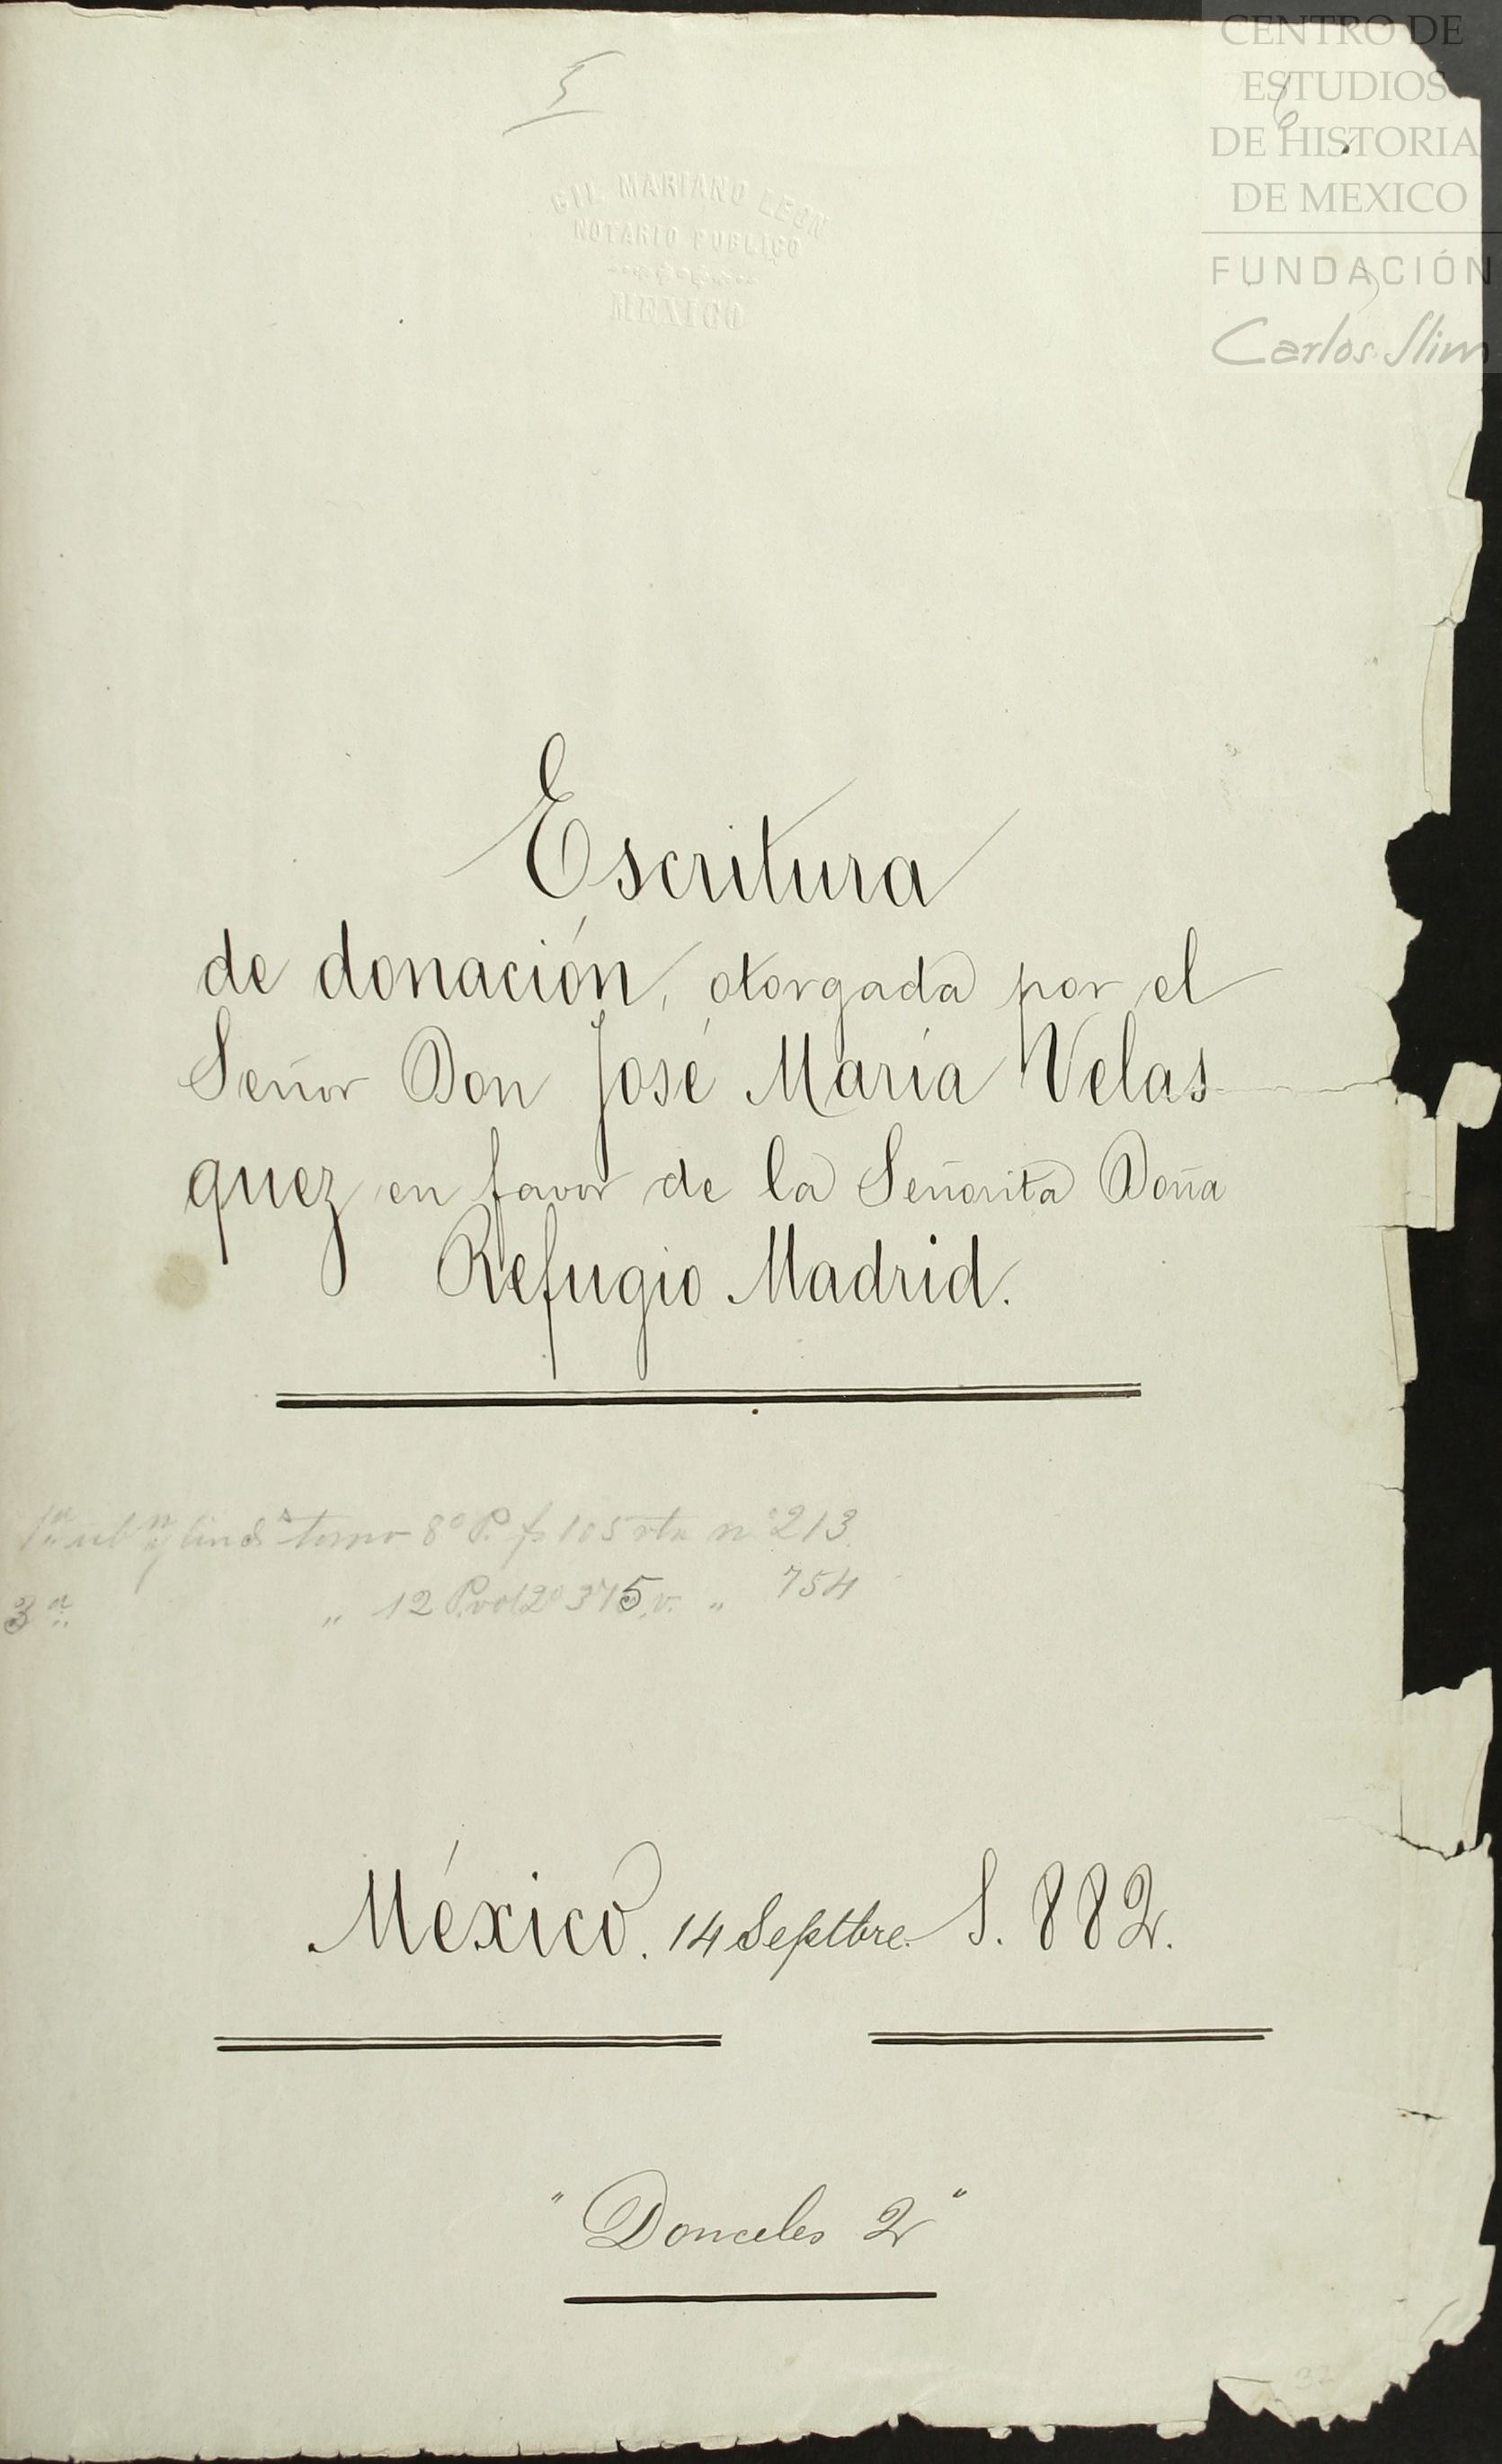 5
CENTRO DE
ESTUDIOS
DE HISTORIA
DE MEXICO
FUNDACIÓN
Carlos Slim
GIL MARIANO LEON
NOTARIO PUBLICO
MEXICO
Escritura
de donación, otorgada por el
Señor Don José María Velas
quez en favor de la Señorita Doña
Refugio Madrid.
tomo 8º P. f 105 vta nº 213.
3ª „ 12 P. vol 2º 375, v. „ 754
México. 14 Septbre. 1.882.
"Donceles 2"